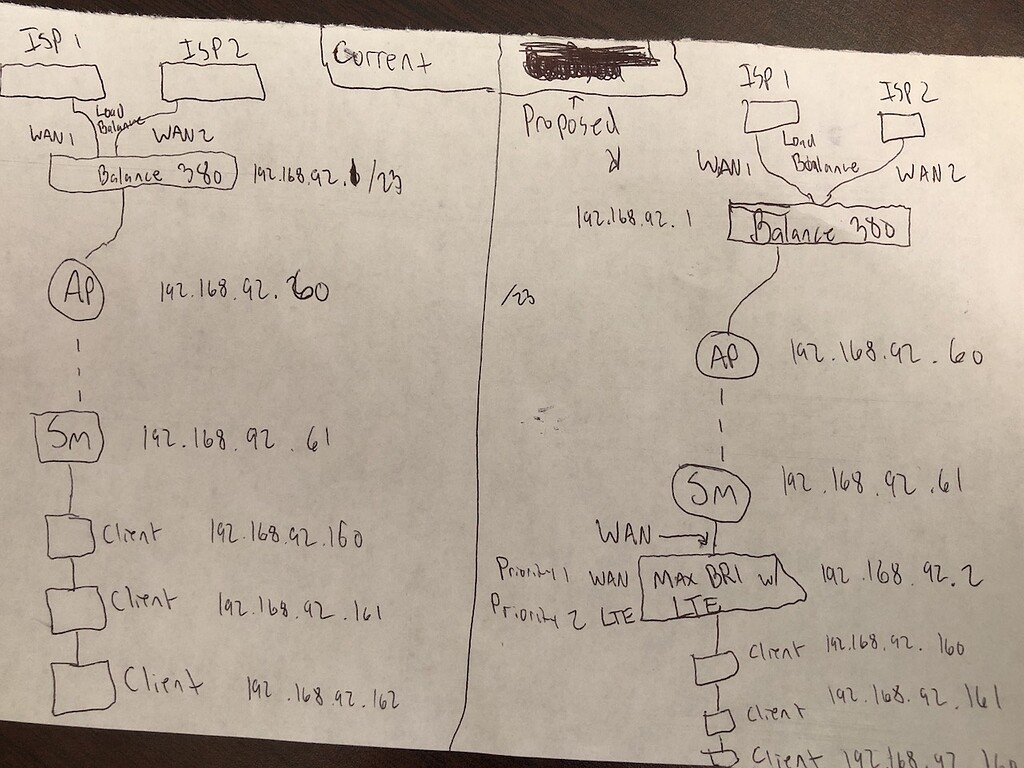 Current
ISP 1
ISP 2
Load
Balance
WAN1
WAN2
Balance 380
192.168.92.1 /23
AP
192.168.92.60
SM
192.168.92.61
Client
192.168.92.160
Client
192.168.92.161
Client
192.168.92.162
Proposed
ISP 1
ISP 2
Load
Balance
WAN1
WAN2
192.168.92.1
Balance 380
/23
AP
192.168.92.60
SM
192.168.92.61
WAN
Priority 1 WAN
Priority 2 LTE
MAX BR1 w/
LTE
192.168.92.2
Client
192.168.92.160
Client
192.168.92.161
Client